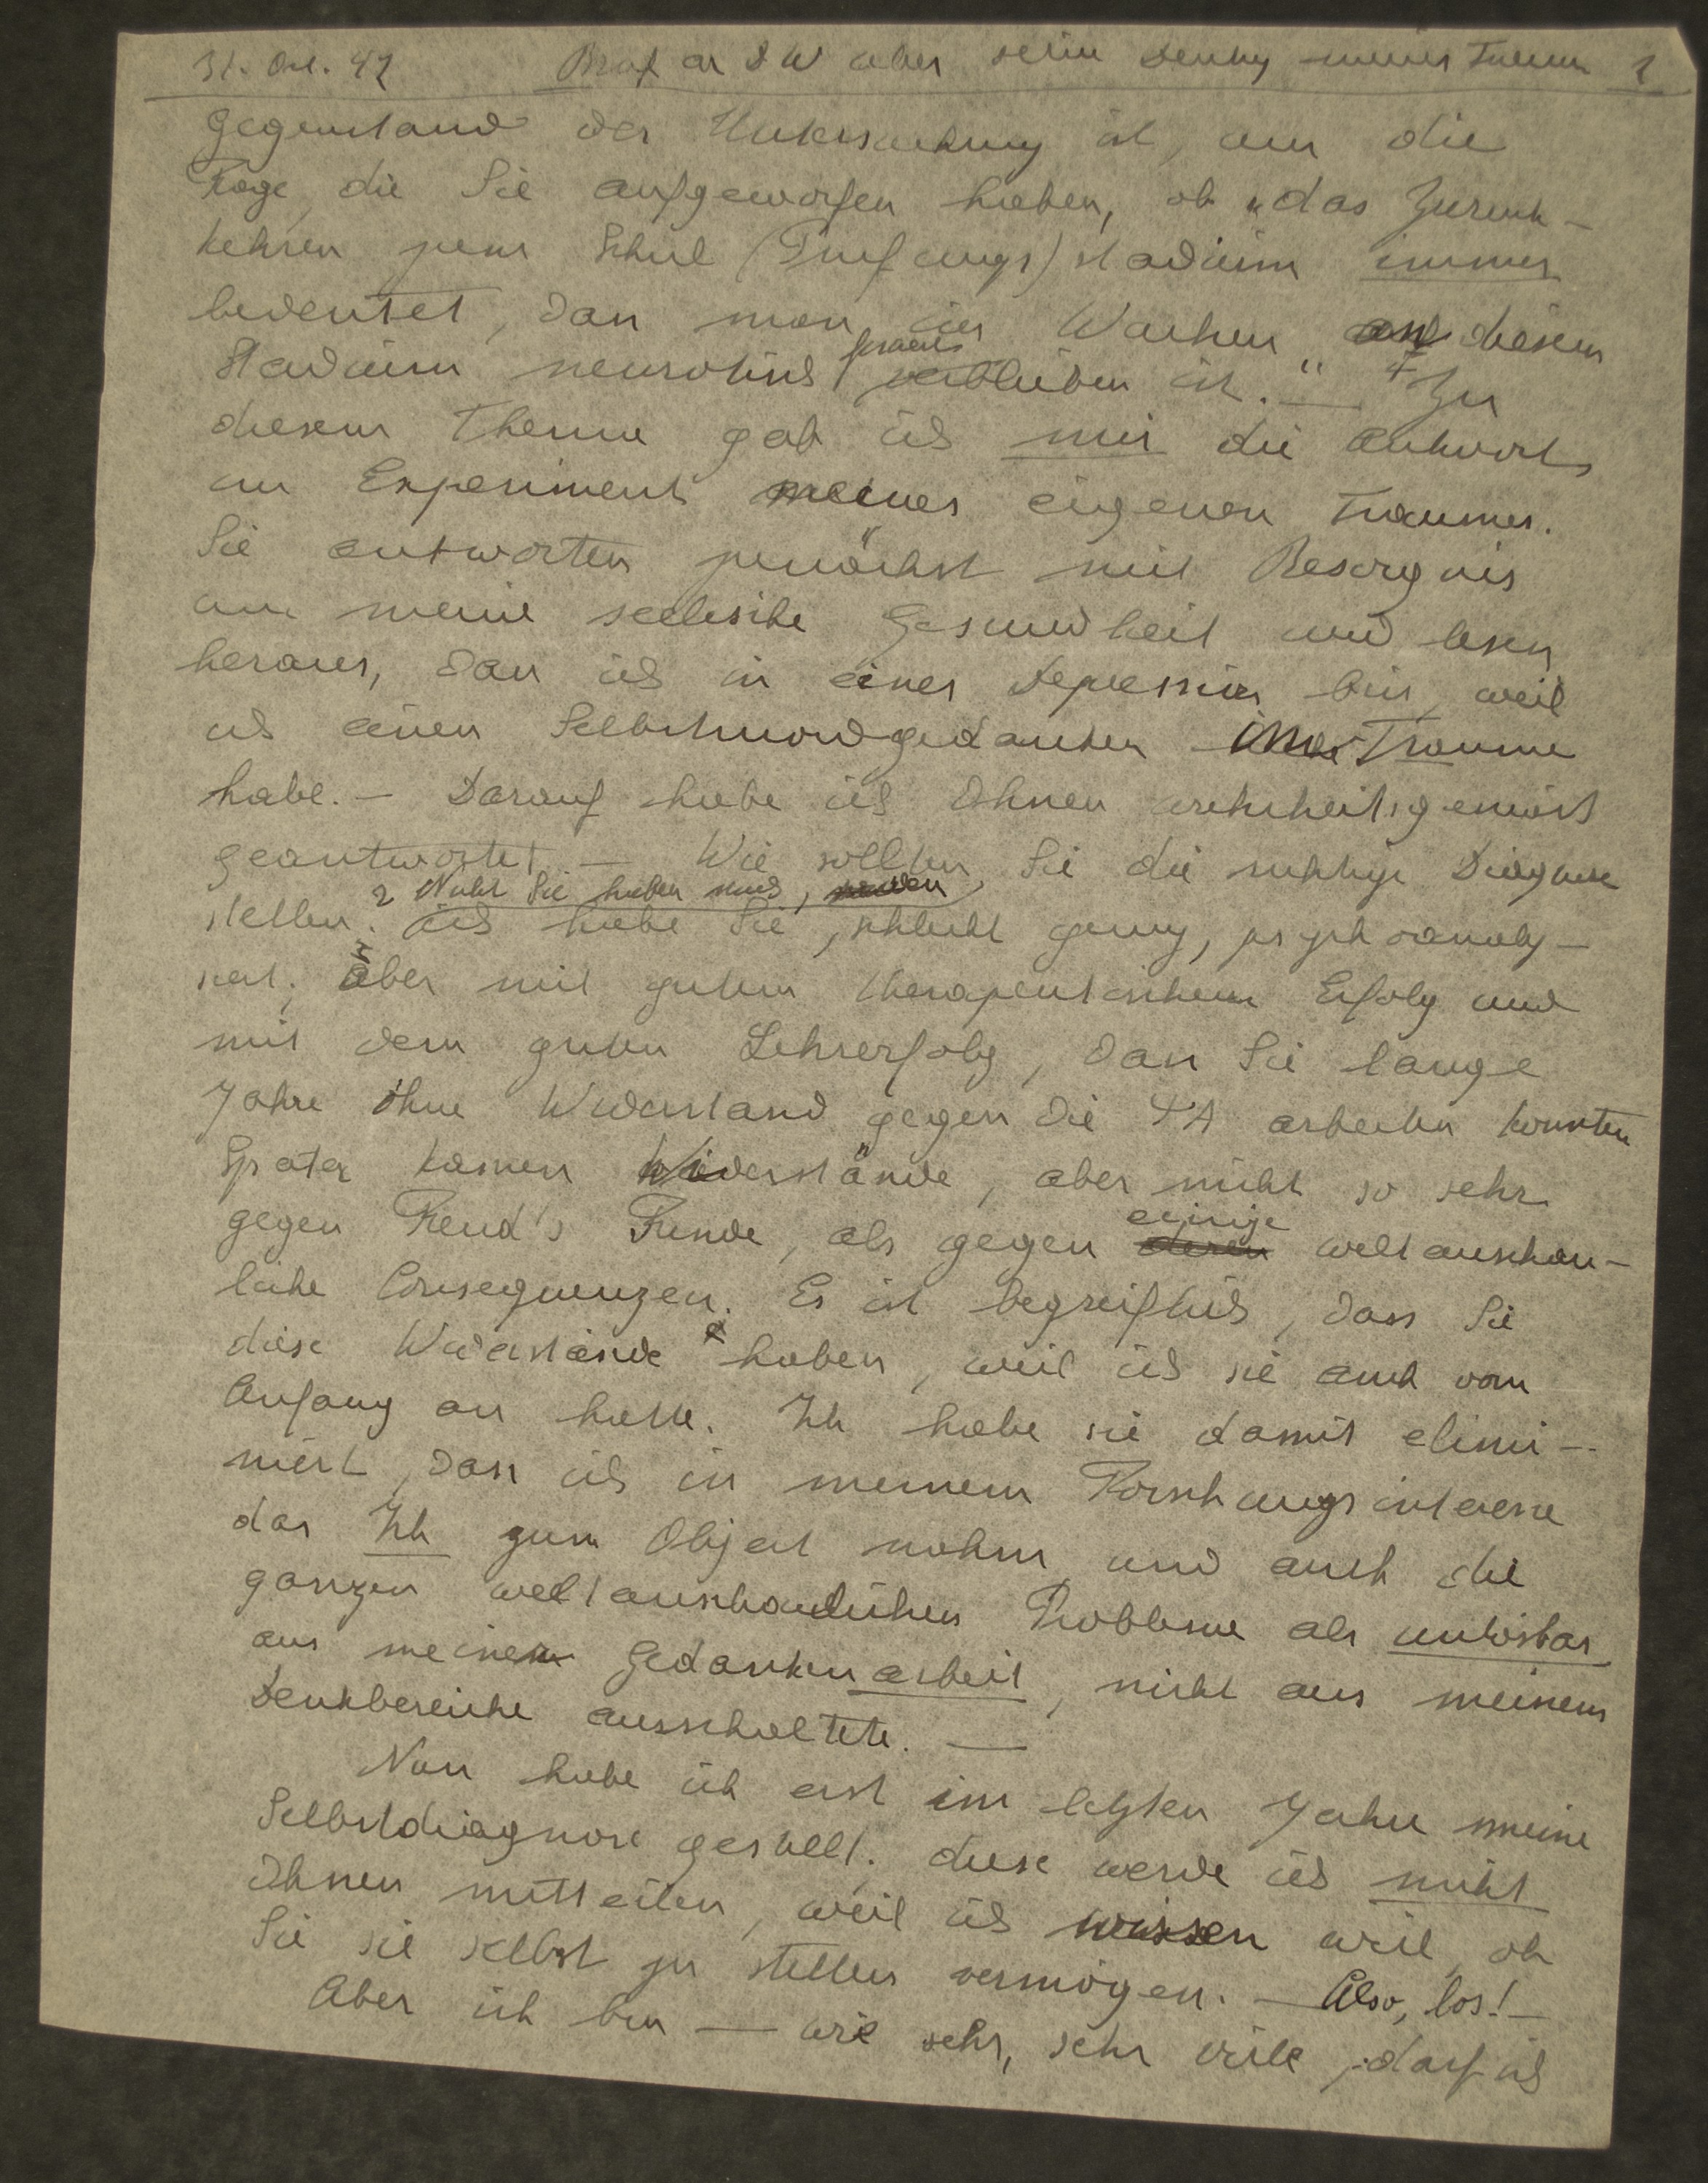 31. Okt. 47 Brief an D W über seine Deutung meines Traums 2
Gegenstand der Untersuchung ist, um die
Frage, die Sie aufgeworfen haben, ob „das Zurück-
kehren zum Schul (Prüfungs) stadium immer
bedeutet, dass man im Wachen an diesem
Stadium neurotisch verblieben ist." — Zu
diesem Thema gab ich mir die Antwort
am Experiment meines eigenen Traumes.
Sie antworten zunächst mit Besorgnis
um meine seelische Gesundheit und lesen
heraus, dass ich in einer Depression bin, weil
ich einen Selbstmordgedanken im Traume
habe. — Darauf habe ich Ihnen wahrheitsgemäss
geantwortet. — Wie sollten Sie die richtige Diagnose
2 Nicht Sie haben mich,
stellen. ich habe Sie, schlecht genug, psychoanaly-
siert; aber mit gutem therapeutischem Erfolg und
mit dem guten Lehrerfolg, dass Sie lange
Jahre ohne Widerstand gegen die ΨA arbeiten konnten
Später kamen Widerstände, aber nicht so sehr
gegen Freud's Funde, als gegen einige weltanschau-
liche Consequenzen. Es ist begreiflich, dass Sie
diese Widerstände haben, weil ich sie auch vom
Anfang an hatte. Ich habe sie damit elimi-
niert, dass ich in meinem Forschungsinteresse
das Ich zum Object nahm und auch die
ganzen weltanschaulichen Probleme als unlösbar
aus meiner Gedankenarbeit, nicht aus meinem
Denkbereiche ausschaltete. —
Nun habe ich erst im letzten Jahre meine
Selbstdiagnose gestellt. diese werde ich nicht
Ihnen mitteilen, weil ich wissen will, ob
Sie sie selbst zu stellen vermögen. — Also, los! —
Aber ich bin — wie sehr, sehr viele, darf ich